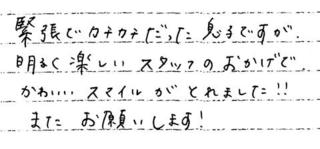 緊張でカチカチだった息子ですが、
明るく楽しいスタッフのおかげで、
かわいいスマイルがとれました!!
また お願いします!